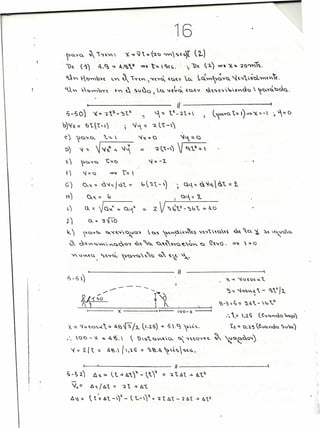 16
para el Tren: x = v̅t = (20 m/seg)t (2)
De (1) 4.9 = 4.9t² ⇒ t = 1 seg. ; De (2) ⇒ x = 20 mts.
Un Hombre en el Tren, verá caer la lámpara verticalmente.
Un Hombre en el suelo, la verá caer describiendo 1 parábola.
5-50) x = 2t³-3t² , y = t²-2t+1 , (para t=1) ⇒ x=-1 ; y=0
b) Vx = 6t(t-1) ; Vy = 2(t-1)
c) para t=1 Vx=0 Vy=0
D) V = √Vx² + Vy² = 2(t-1) √9t²+1
E) para t=0 V=-2
F) V=0 ⇒ t=1
G) ax = dVx/dt = 6(2t-1) ; ay = dVy/dt = 2
H) ax = 6 ; ay = 2
I) a = √ax² + ay² = 2
J) a = 2√10
K) para averiguar las pendientes verticales de la y se iguala
el denominador de la aceleración a cero. ⇒ t=0
nunca será paralela al eje y.
5-51)
x = Vocosα t
8-3+6 = 24t-16t²
x
100-x
∴ t₁ 1,25 (cuando baja)
t₂ = 0,25 (cuando sube)
∴ 100-x = 48.1 (Distancia q' recorre el jugador)
V = E/t = 48.1/1,25 = 38.4 pies/seg.
5-52) Δx = (t+Δt)² - (t)² = 2tΔt + Δt²
V̅x = Δx/Δt = 2t + Δt
Δy = (t+Δt-1)² - (t-1)² = 2tΔt - 2Δt + Δt²